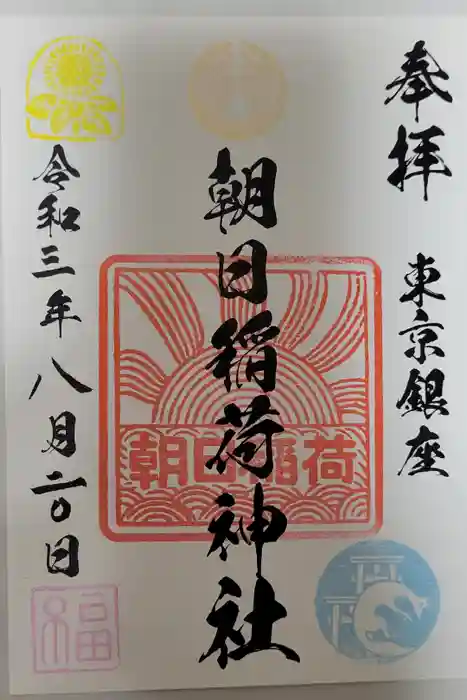 奉拝
東京銀座
朝日稲荷神社
朝日稲荷
令和三年八月二〇日
福